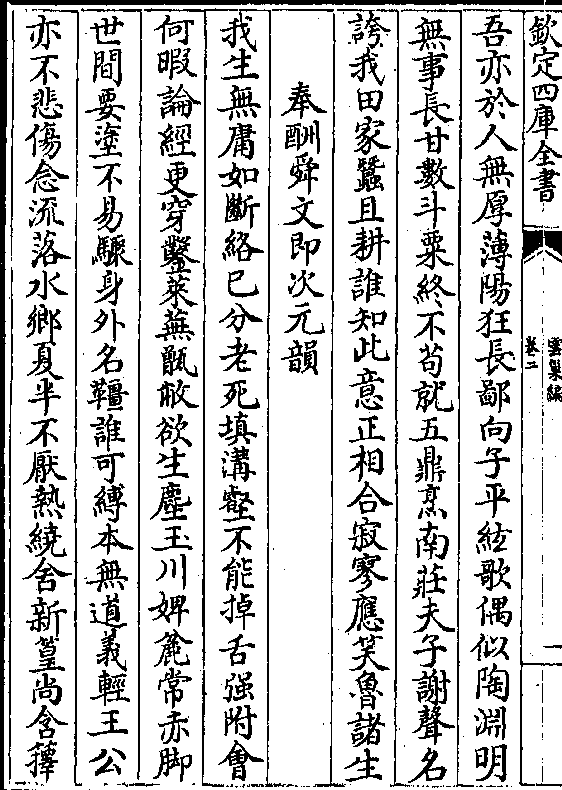 欽定四庫全書
雲巢編
卷二
一
吾亦於人無厚薄陽狂長鄙向子平絃歌偶似陶淵明
無事長甘數斗粟終不苟就五鼎烹南莊夫子謝聲名
誇我田家蠶且耕誰知此意正相合寂寥應笑魯諸生
奉酬舜文即次元韻
我生無庸如斷絡已分老死填溝壑不能掉舌强附會
何暇論經更穿鑿萊蕪甑敝欲生塵玉川婢麄常赤脚
世間要塗不易驟身外名韁誰可縛本無道義輕王公
亦不悲傷念流落水鄉夏半不厭熱繞舍新篁尚含籜